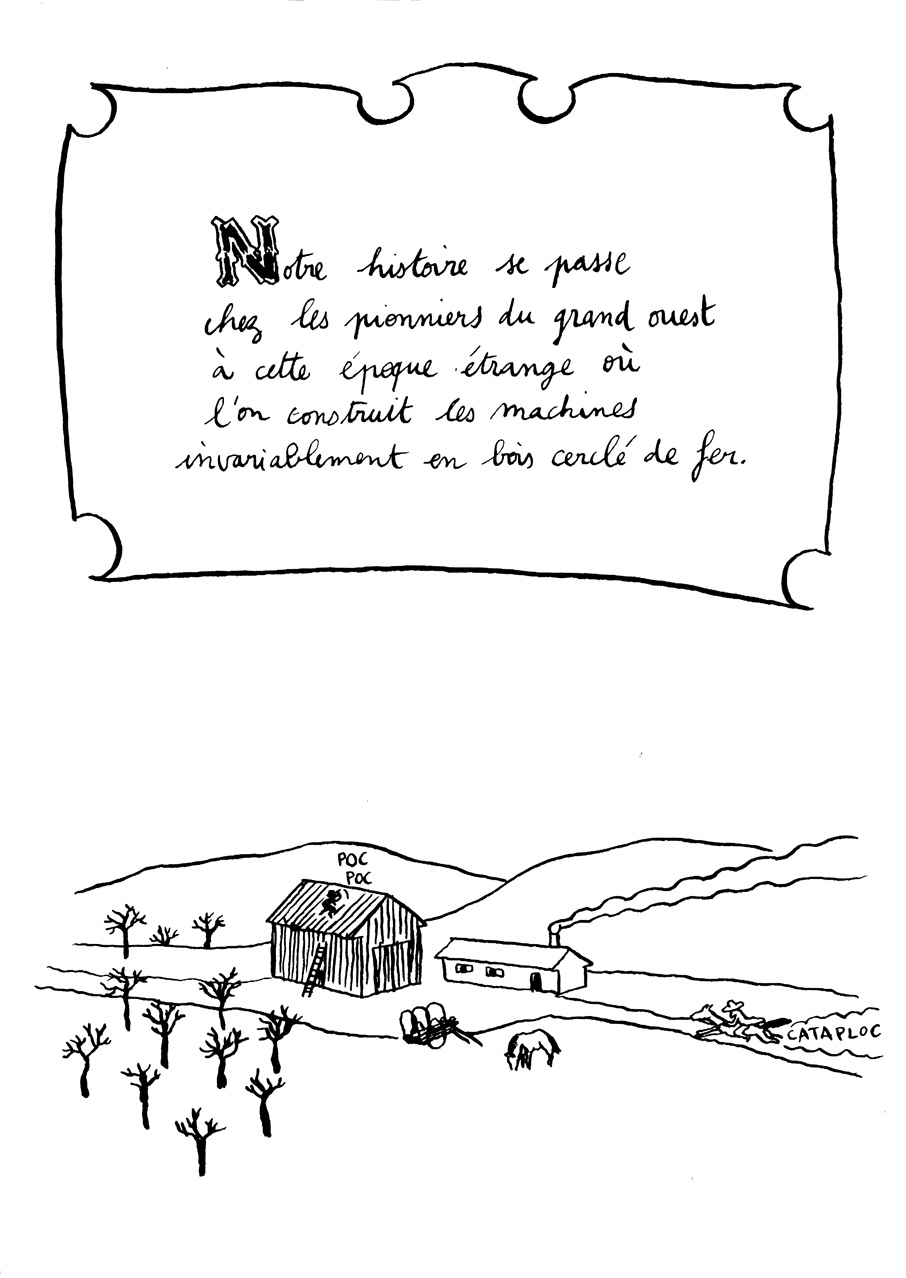 Notre histoire se passe
chez les pionniers du grand ouest
à cette époque étrange où
l'on construit les machines
invariablement en bois cerclé de fer.
POC
POC
CATAPLOC